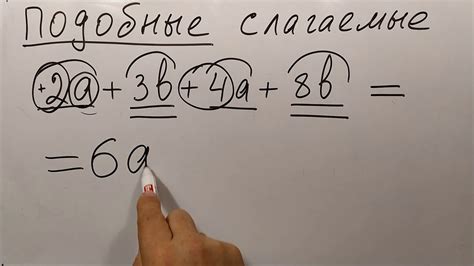 Подобные слагаемые
+2a+3b+4a+8b=
=6a